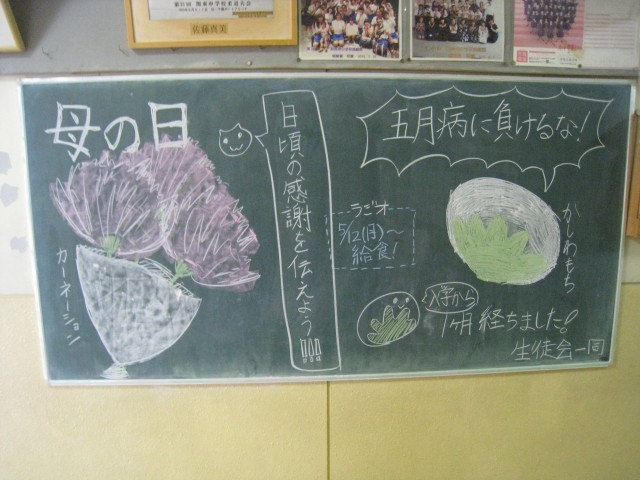 佐藤真美
母の日
カーネーション
日頃の感謝を伝えよう!!!
ラジオ
5/12(月)〜
給食!
五月病に負けるな!
かしわもち
入学から
1ヶ月経ちました!
生徒会一同